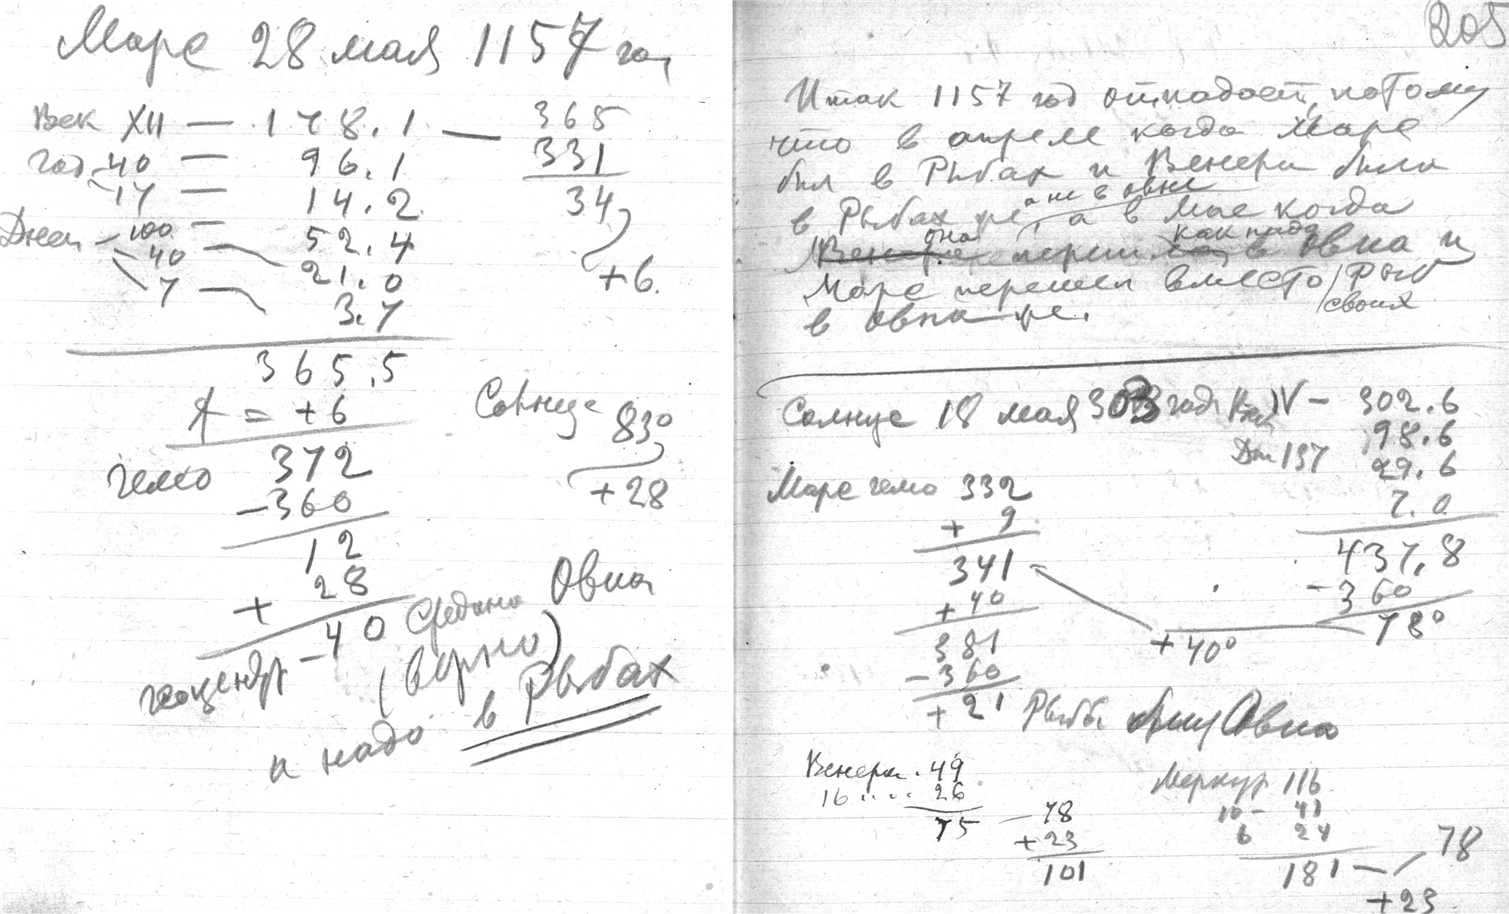 Марс 28 мая 1157 год
Век XII — 178.1 — 365
Год 40 — 96.1 331
17 — 14.2 34
Дней — 100 — 52.4
40 — 21.0 +6.
7 — 3.7
365.5
= +6 Солнце 83°
гелио 372 +28
-360
12
+ 28
40 Средина Овна
геоцентр (верно)
а надо в Рыбах
205
Итак 1157 год отпадает, потому
что в апреле когда Марс
был в Рыбах и Венера была
а не в овне
в Рыбах же, а в Мае когда
она как надо
перешла в Овна и
Марс перешел вместо Рыб
своих
в овна же.
Солнце 18 мая 303 год Век IV — 302.6
98.6
Дни 137 29.6
Марс гелио 332 7.0
+ 9 437.8
341 - 360
+ 40 +40° 78°
381
- 360
+ 21 Рыбы Овна
Венера . 49 Меркур 116
16 .... 26 10 — 41
75 — 78 6 24
+ 23 181 — 78
101 + 23